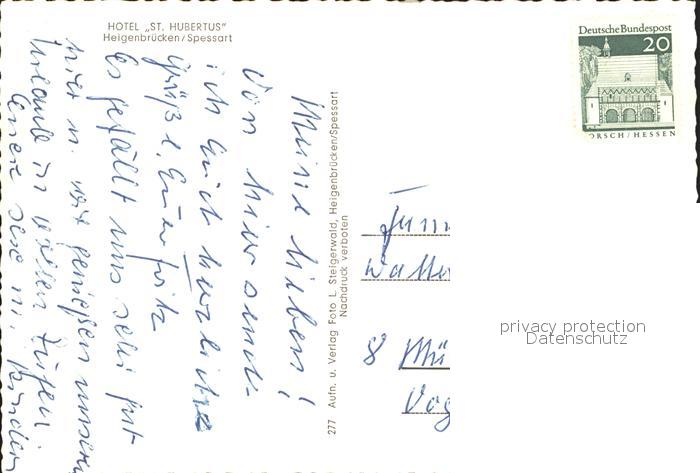 HOTEL „ST. HUBERTUS"
Heigenbrücken/Spessart
Deutsche Bundespost
20
ORSCH/HESSEN
Meine Lieben!
Von hier send-
ich Euch herzliche
Grüße, Euer Fritz
Es gefällt uns sehr gut
hier u. wir genießen unseren
Urlaub in vollen Zügen.
277 Aufn. u. Verlag Foto L. Steigerwald, Heigenbrücken/Spessart
Nachdruck verboten
Fam
Walte
8 Mü
Vog
privacy protection
Datenschutz